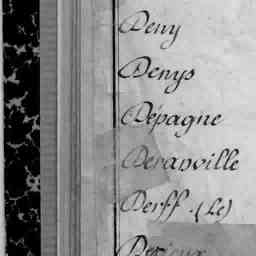 Deny
Denys
Dépagne
Deranville
Derff. (Le)